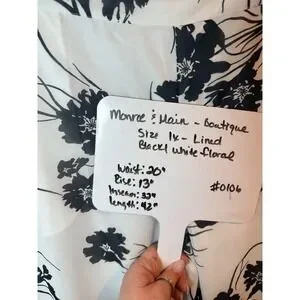 Monroe & Main - Boutique
Size 1x - Lined
Black/White floral
Waist: 20"
Rise: 13"
Inseam: 32"
#0106
Length: 42"